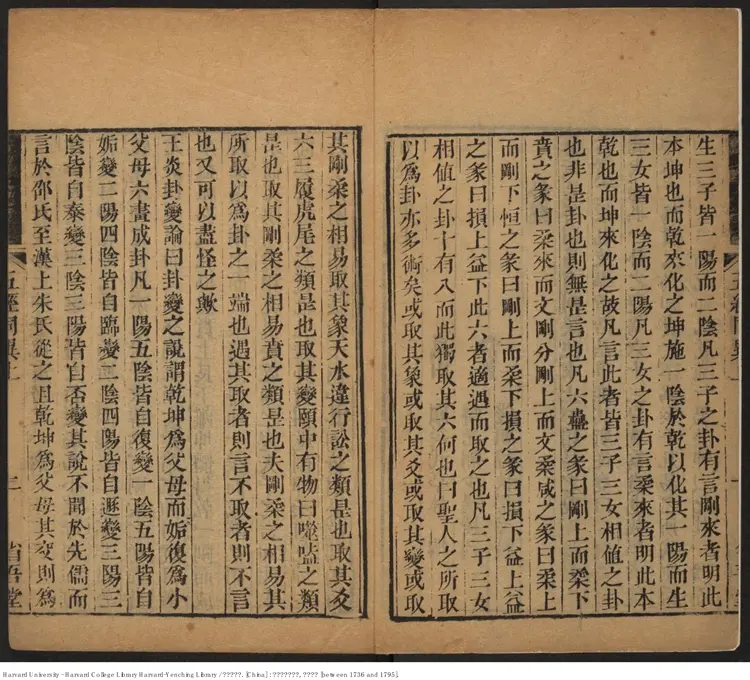 生三子皆一陽而二陰凡三子之卦有言剛來者明此
本坤也而乾來化之坤施一陰於乾以化其一陽而生
三女皆一陰而二陽凡三女之卦有言柔來者明此本
乾也而坤來化之故凡言此者皆三子三女相值之卦
也非是卦也則無是言也凡六蠱之彖曰剛上而柔下
賁之彖曰柔來而文剛分剛上而文柔咸之彖曰柔上
而剛下恒之彖曰剛上而柔下損之彖曰損下益上益
之彖曰損上益下此六者適遇而取之也凡三子三女
相值之卦十有八而此獨取其六何也曰聖人之所取
以爲卦亦多術矣或取其象或取其爻或取其變或取
其剛柔之相易取其象天水違行訟之類是也取其爻
六三履虎尾之類是也取其變頤中有物曰噬嗑之類
是也取其剛柔之相易賁之類是也夫剛柔之相易其
所取以爲卦之一端也遇其取者則言不取者則不言
也又可以盡怪之歟
王炎卦變論曰卦變之說謂乾坤爲父母而姤復爲小
父母六畫成卦凡一陽五陰皆自復變一陰五陽皆自
姤變二陽四陰皆自臨變二陰四陽皆自遯變三陽三
陰皆自泰變三陰三陽皆自否變其說不聞於先儒而
言於邵氏至漢上朱氏從之且乾坤爲父母其交則爲
五經同異上
二
省吾堂
Harvard University - Harvard College Library Harvard-Yenching Library / ?????. [China] : ???????, ???? [between 1736 and 1795].